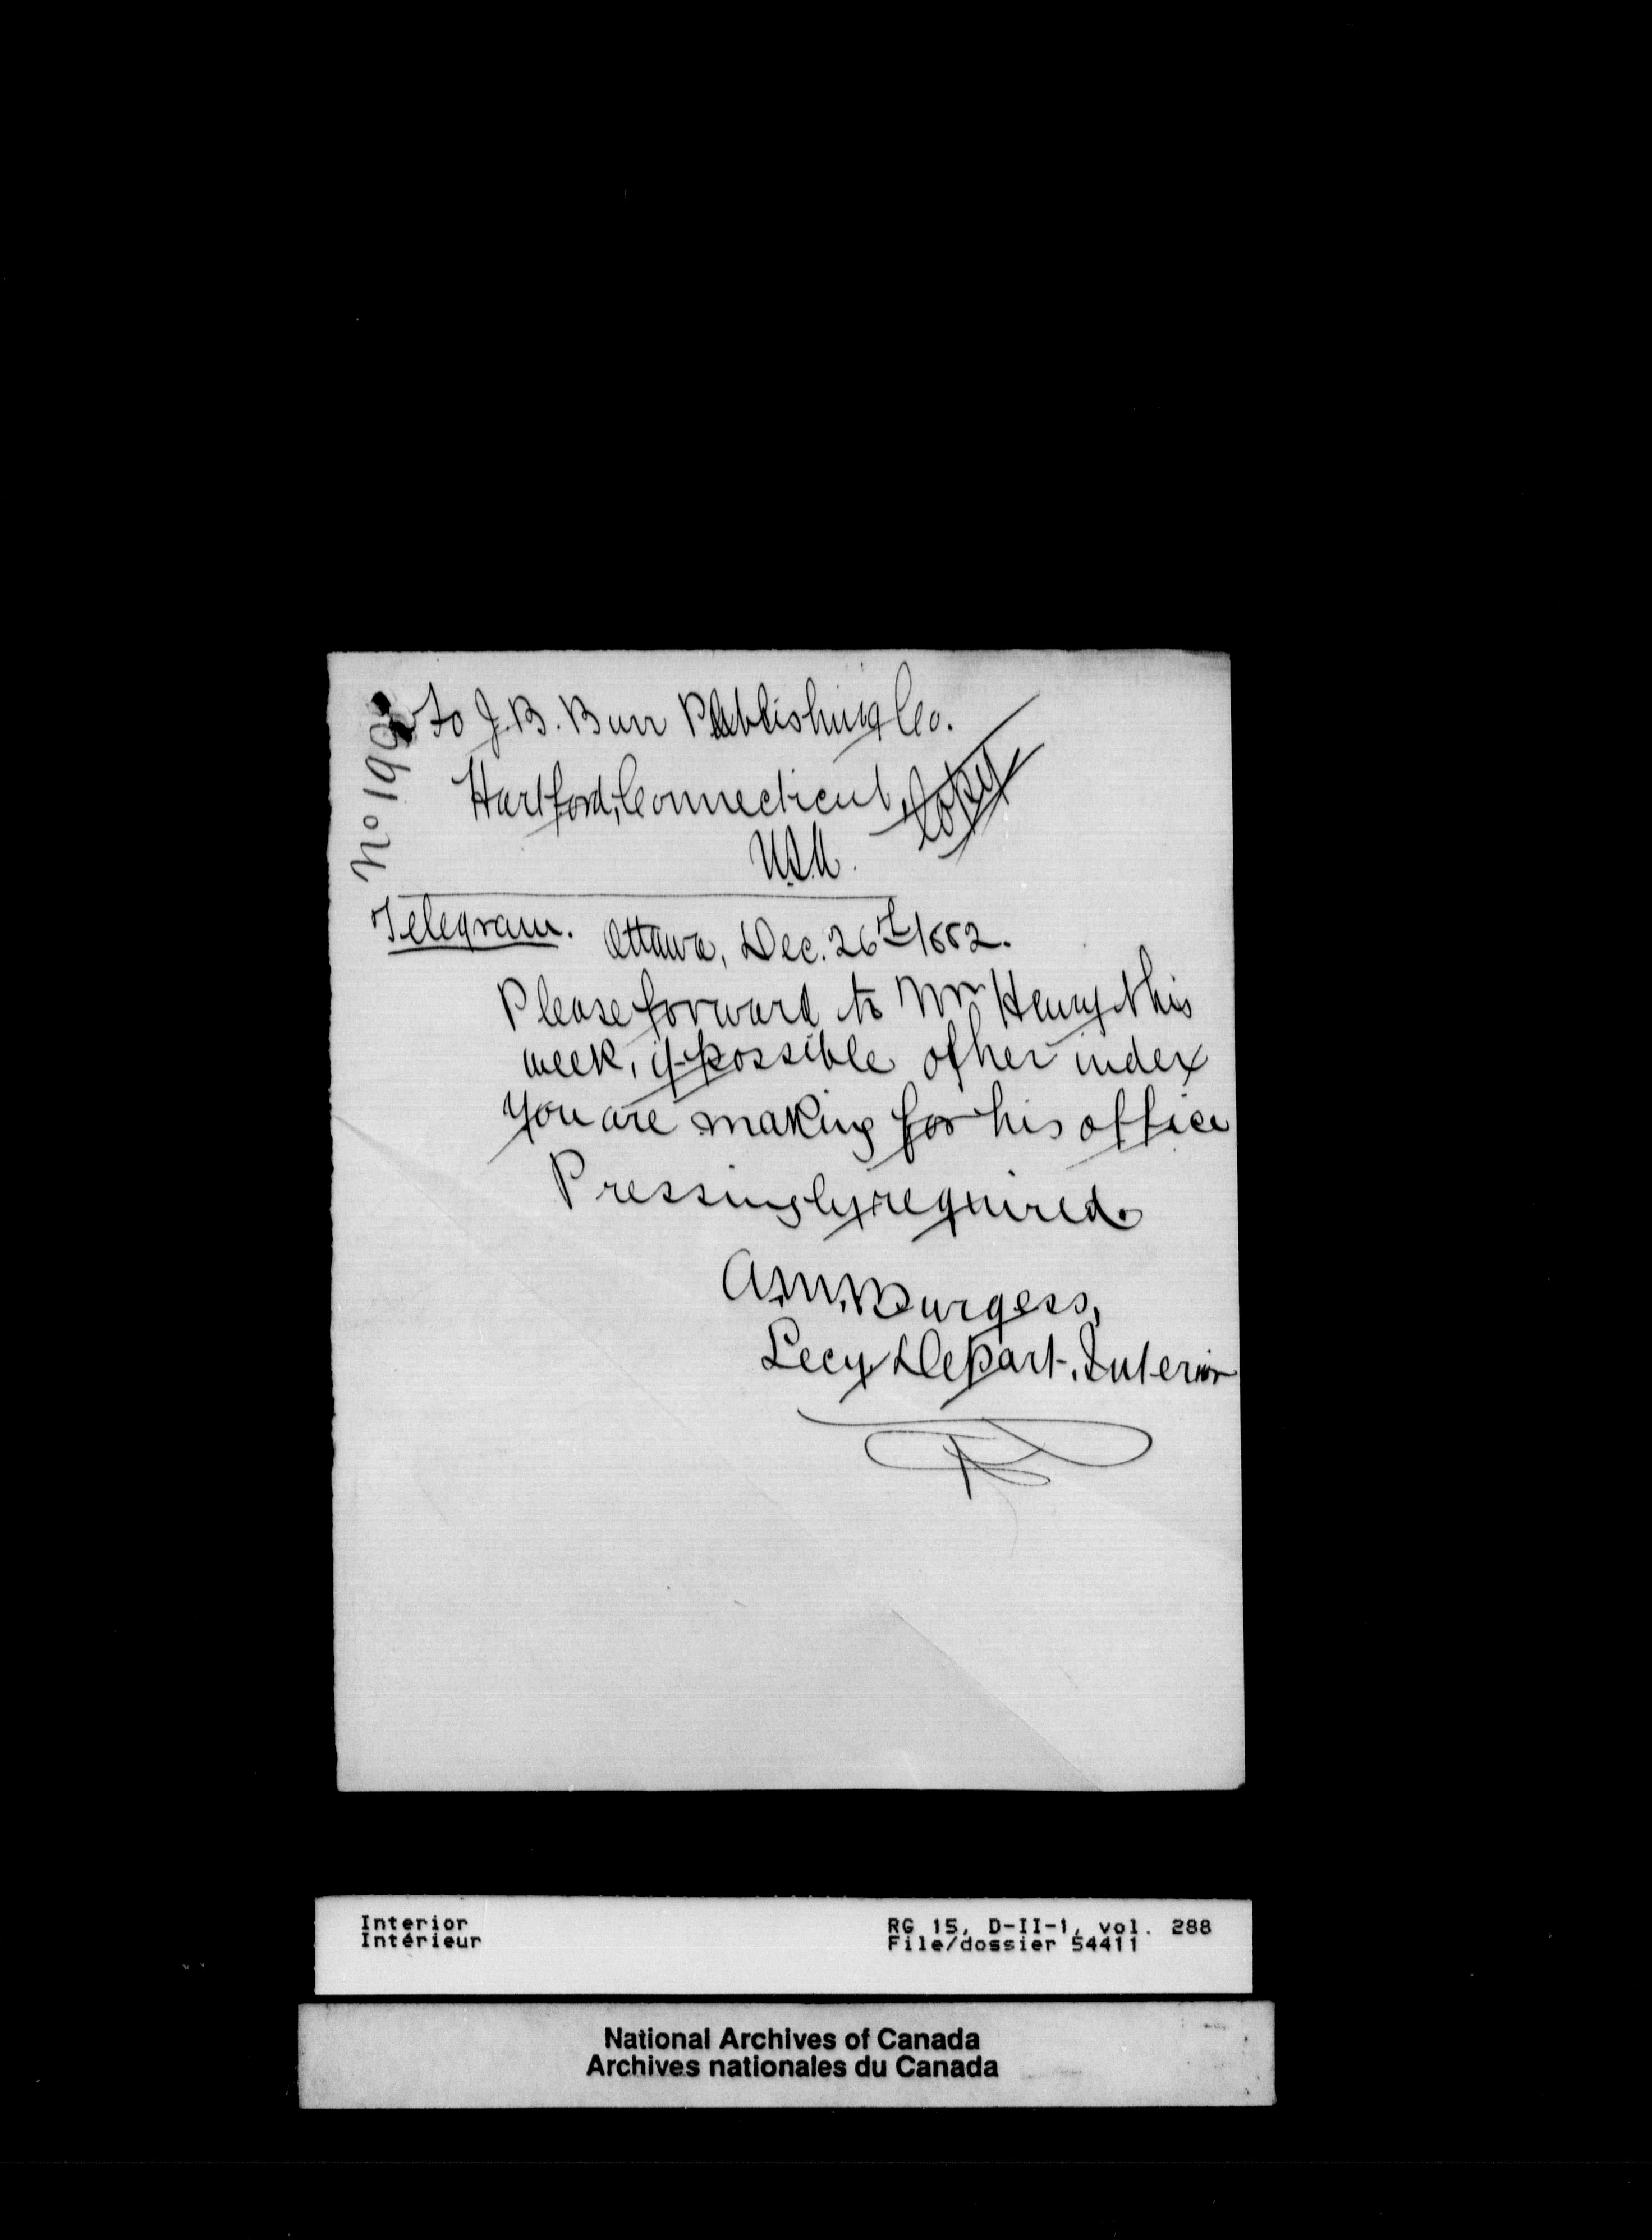 To J. B. Burr Publishing Co.
Hartford, Connecticut,
U.S.A.
Copy
No 199
Telegram. Ottawa, Dec. 26th 1882.
Please forward to Wm Henry this
week, if possible other index
you are making for his office
Pressingly required.
A. M. Burgess,
Secy Depart. Interior
Interior
Intérieur
RG 15, D-II-1, vol. 288
File/dossier 54411
National Archives of Canada
Archives nationales du Canada